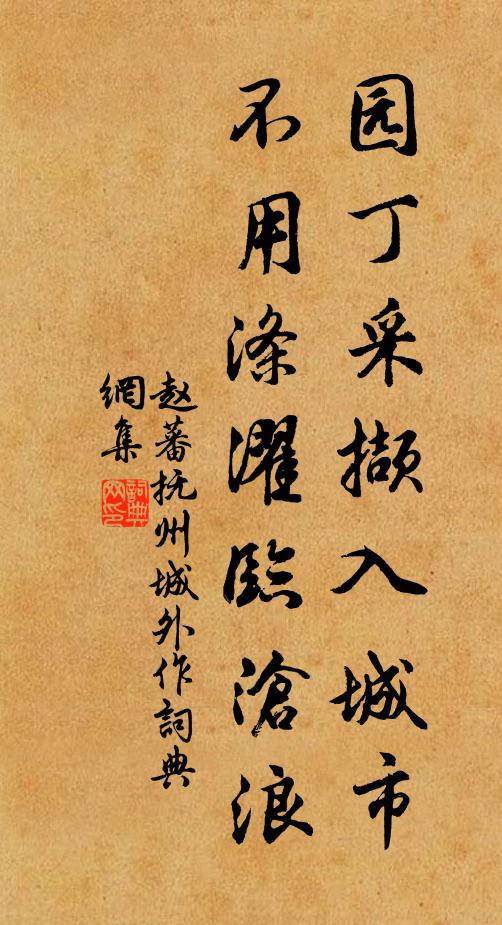 园丁采撷入城市
不用涤濯临沧浪
赵蕃抚州城外作词典
網集
詞典
网印